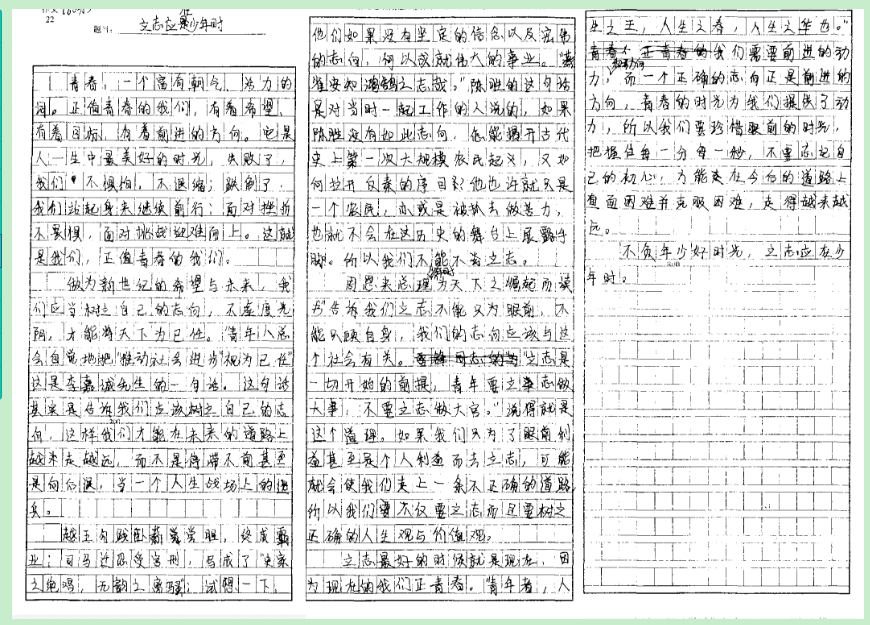 22
题号：立志应是少年时
青春，一个富有朝气、活力的
词。正值青春的我们，有着希望，
有着目标，有着前进的方向。它是
人一生中最美好的时光，失败了，
我们不惧怕，不退缩；跌倒了，
我们站起身来继续前行；面对挫折
不畏惧，面对挑战迎难而上。这就
是我们，正值青春的我们。
做为新世纪的希望与未来，我
们应当树立自己的志向，不虚度光
阴，才能将天下为己任。"青年人总
会自觉地把"推动社会进步"视为己任"
这是李嘉诚先生的一句话。这句话
其实是告诉我们应该树立自己的志
向，这样我们才能在未来的道路上
越来走越远，而不是停滞不前甚至
是向后退，当一个人生战场上的逃
兵。
越王勾践卧薪尝胆，终成霸
业；司马迁忍受宫刑，写成了"史家
之绝唱，无韵之离骚"；试想一下，
他们如果没有坚定的信念以及宏伟
的志向，何以成就伟大的事业。"燕
雀安知鸿鹄之志哉。"陈胜的这句话
是对当时一起工作的人说的，如果
陈胜没有如此志向，怎能揭开古代
史上第一次大规模农民起义，又如
何拉开反秦的序目？他也许就只是
一个农民，亦或是被抓去做苦力，
也就不会在这历史的舞台上展露手
脚。所以我们不能不立志。
周恩来总理为天下之崛起而读
书告诉我们立志不能只为眼前，不
能只顾自身，我们的志向应该与这
个社会有关。"立志是
一切开始的前提，青年要立志做
大事，不要立志做大官。"说得就是
这个道理。如果我们只为了眼前利
益甚至是个人利益而去立志，可能
就会使我们走上一条不正确的道路
所以我们要不仅要立志而且要树立
正确的人生观与价值观。
立志最好的时候就是现在，因
为现在的我们正青春。"青年者，人
生之王，人生之春，人生之华也。"
我们需要前进的动
力，而一个正确的志向正是前进的
方向，青春的时光为我们提供了动
力，所以我们要珍惜眼前的时光，
把握住每一分每一秒，不要忘记自
己的初心，方能更在今后的道路上
直面困难并克服困难，走得越来越
远。
不负年少好时光，立志应在少
年时。